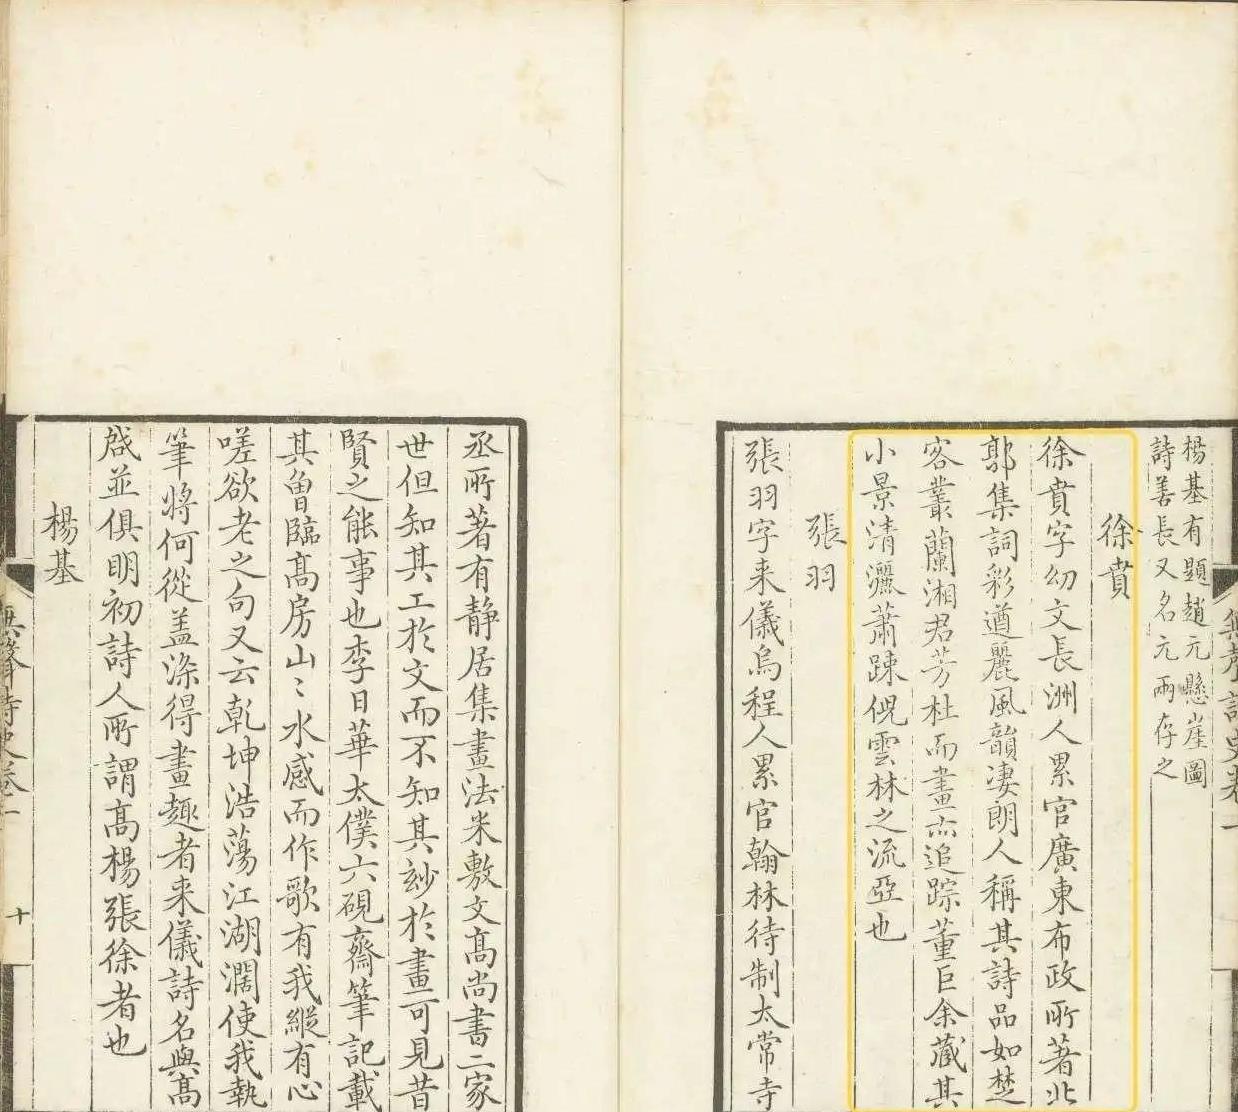 楊基有題趙元懸崖圖
詩善長又名元兩存之
徐賁
徐賁字幼文長洲人累官廣東布政所著北
郭集詞彩遒麗風韻凄朗人稱其詩品如楚
客叢蘭湘君芳杜而畫亦追踪董巨余藏其
小景清灑蕭踈倪雲林之流亞也
張羽
張羽字来儀烏程人累官翰林待制太常寺
丞所著有静居集畫法米敷文髙尚書二家
世但知其工於文而不知其妙於畫可見昔
賢之能事也李日華太僕六硯齋筆記載
其曾臨髙房山〻水感而作歌有我縱有心
嗟欲老之句又云乾坤浩蕩江湖濶使我執
筆將何從盖深得畫趣者来儀詩名與髙
啟並俱明初詩人所謂髙楊張徐者也
楊基
無聲詩史卷一
十